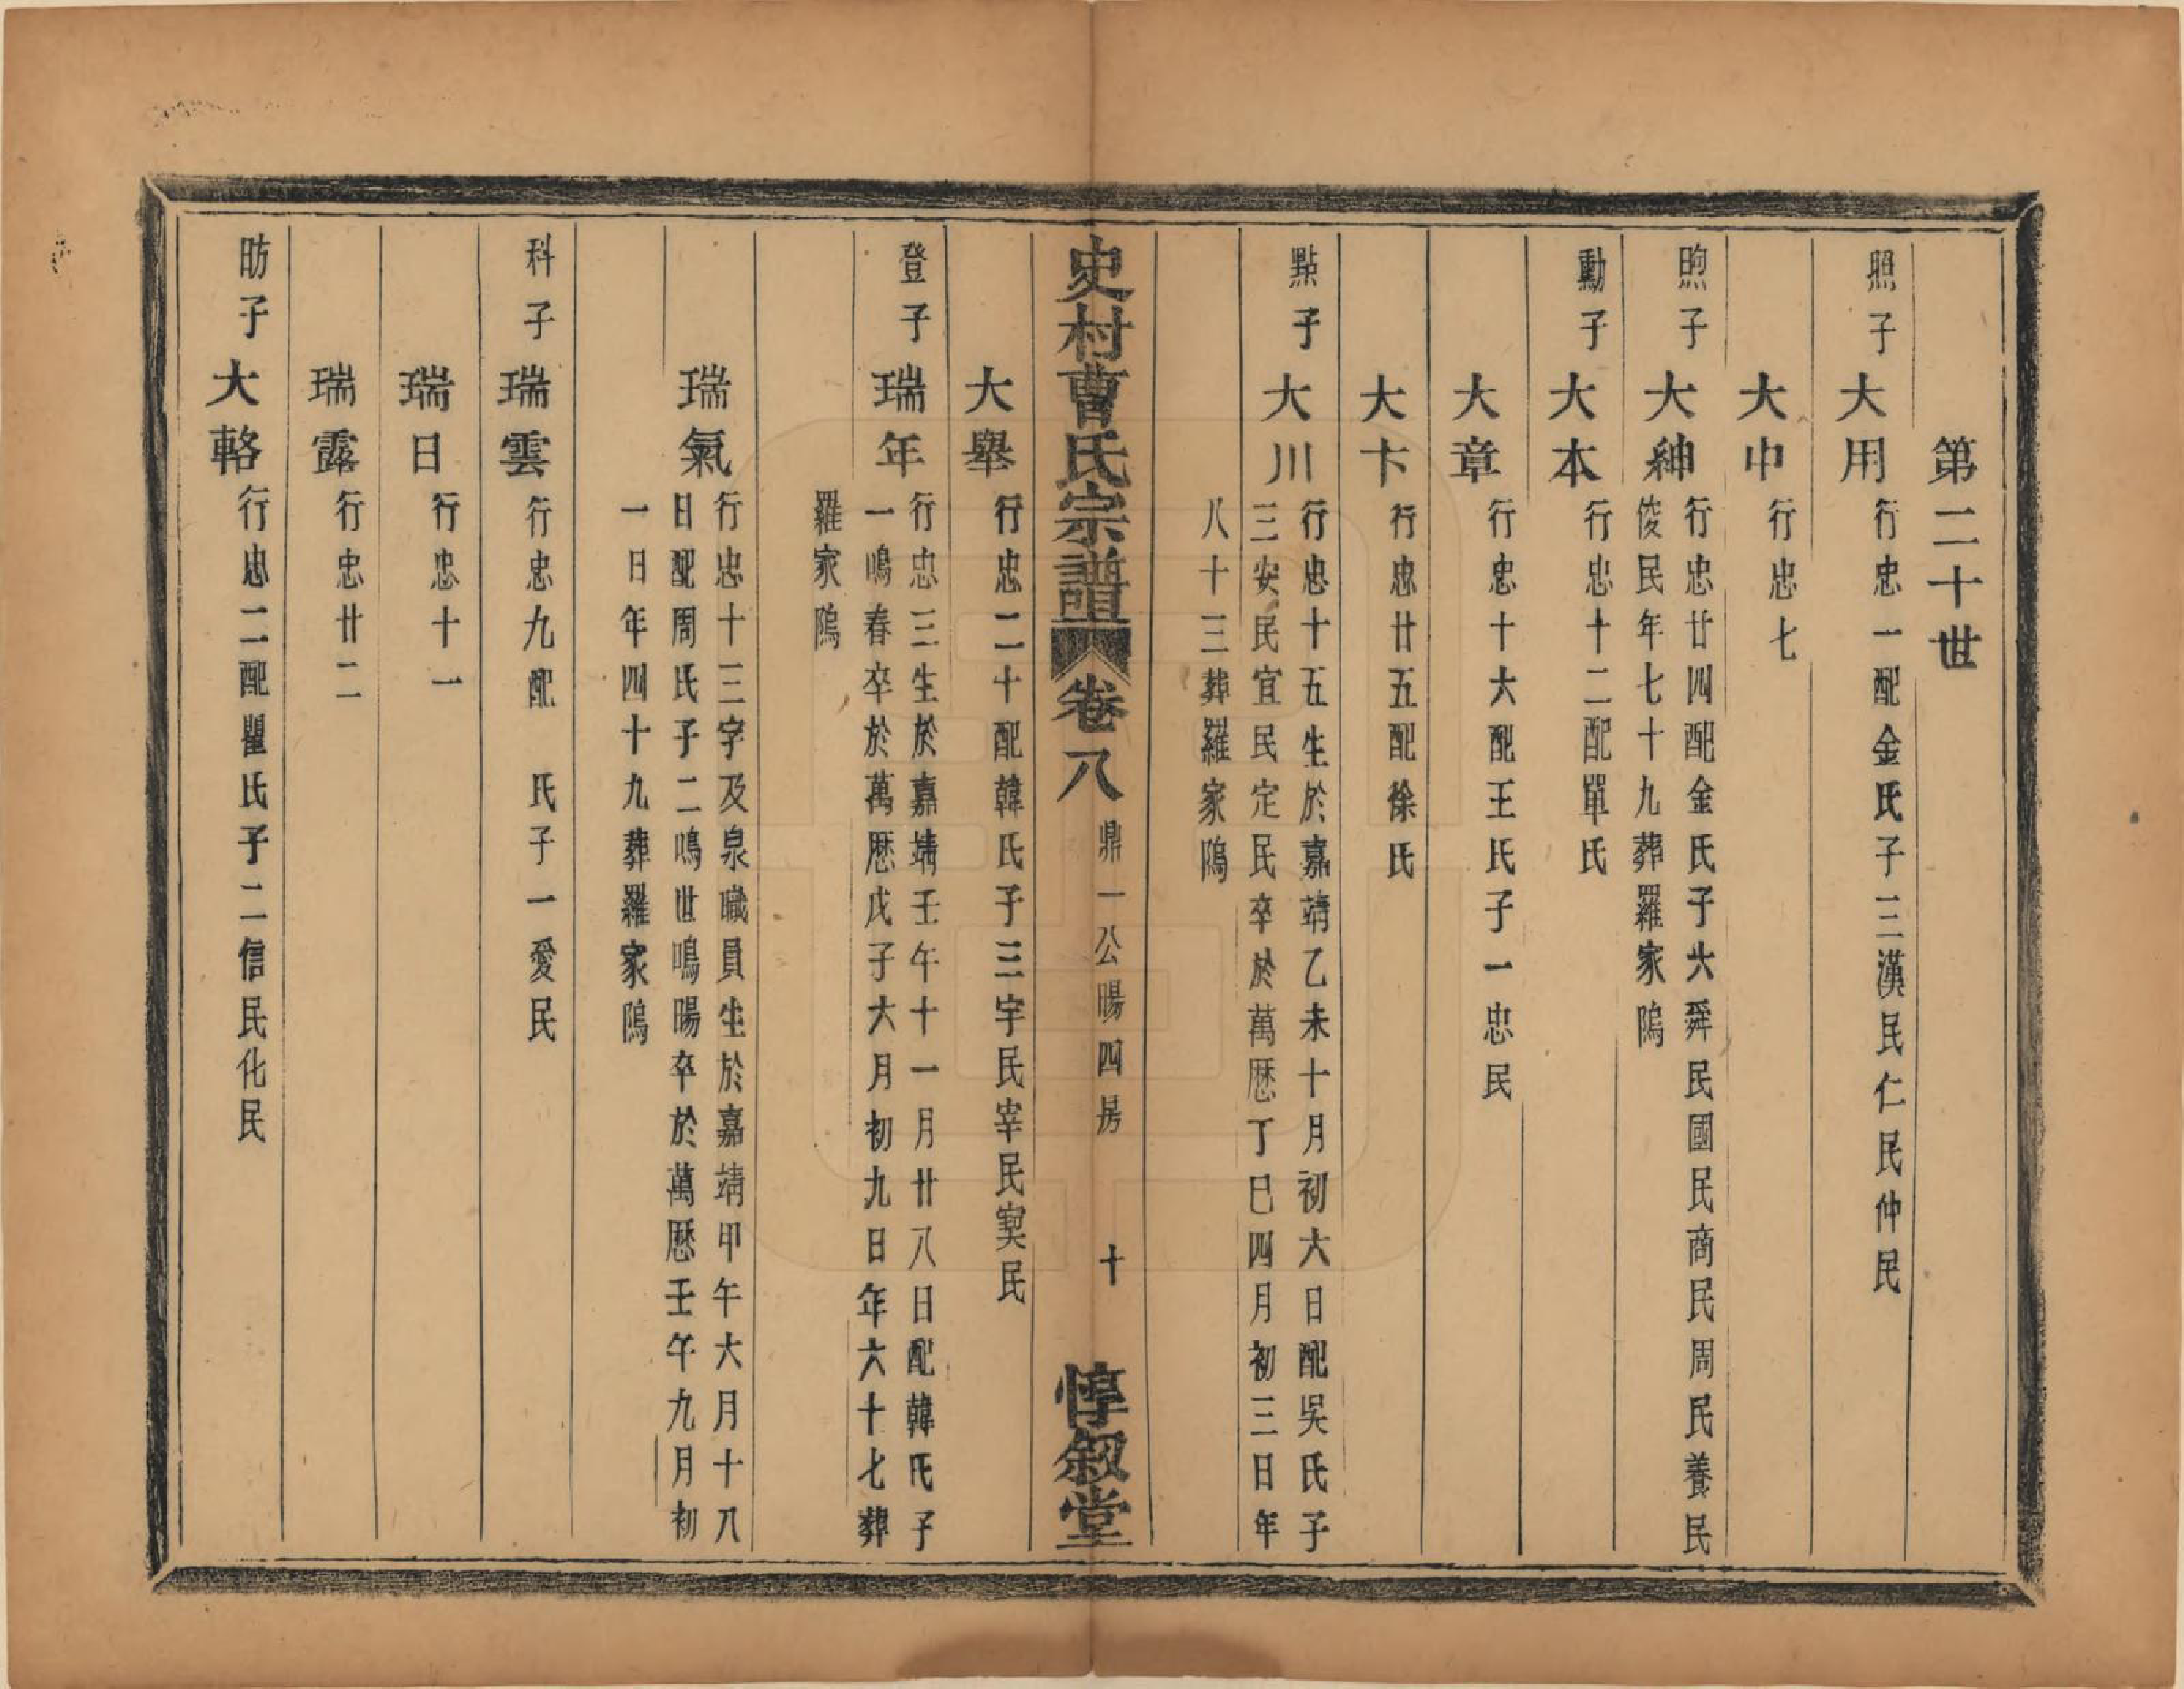 第二十世
照子 大用 行忠一配金氏子三漢民仁民仲民
大中 行忠七
煦子 大紳 行忠廿四配金氏子六舜民國民商民周民養民
俊民年七十九葬羅家隖
勳子 大本 行忠十二配單氏
大章 行忠十六配王氏子一忠民
大卞 行忠廿五配徐氏
點子 大川 行忠十五生於嘉靖乙未十月初六日配吳氏子
三安民宜民定民卒於萬厯丁巳四月初三日年
八十三葬羅家隖
史村曹氏宗譜 卷八 鼎一公暘四房 十 惇叙堂
大舉 行忠二十配韓氏子三宇民宰民寞民
登子 瑞年 行忠三生於嘉靖壬午十一月廿八日配韓氏子
一鳴春卒於萬厯戊子六月初九日年六十七葬
羅家隖
瑞氣 行忠十三字及泉職員生於嘉靖甲午六月十八
日配周氏子二鳴世鳴暘卒於萬厯壬午九月初
一日年四十九葬羅家隖
科子 瑞雲 行忠九配 氏子一愛民
瑞日 行忠十一
瑞露 行忠廿二
昉子 大輅 行忠二配瞿氏子二信民化民